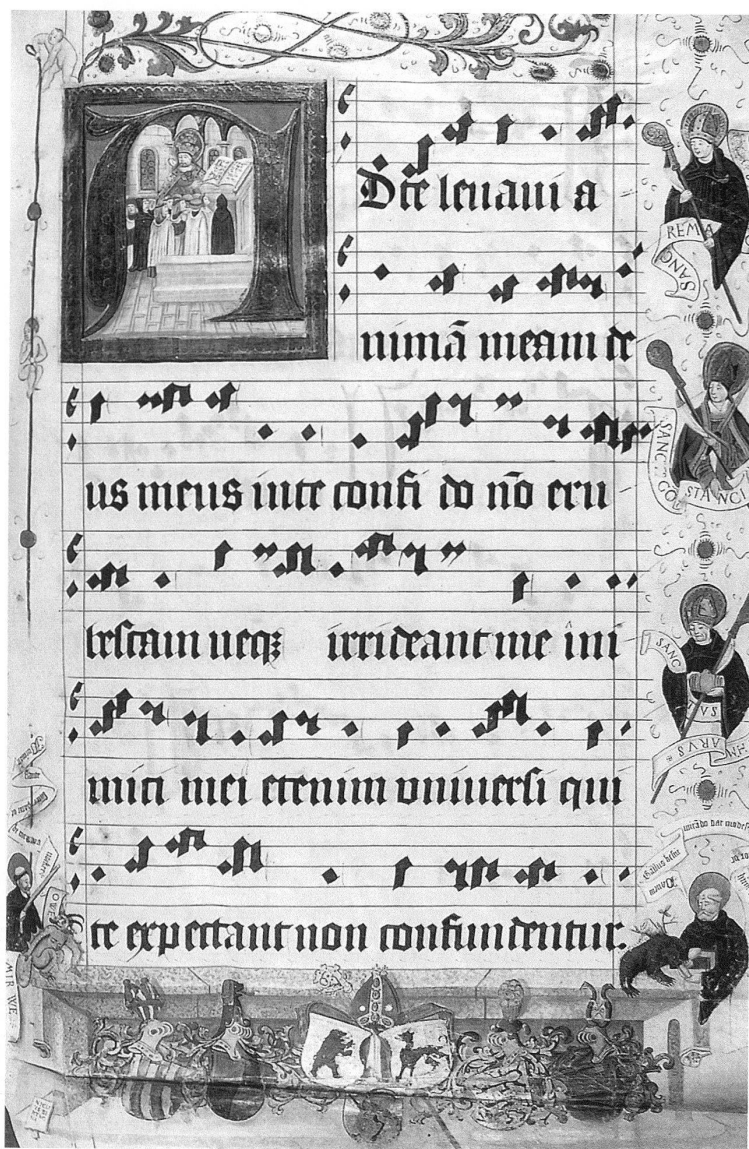 A
Dte leuaui a
nimā meam de
us meus in te confi do nō eru
bescam neqꝫ irrideant me ini
mici mei etenim vniuersi qui
te expectant non confundentur.
REMA
SANC
SANC
CO
STANCI
SANC
VS
ARVS
MIR WE